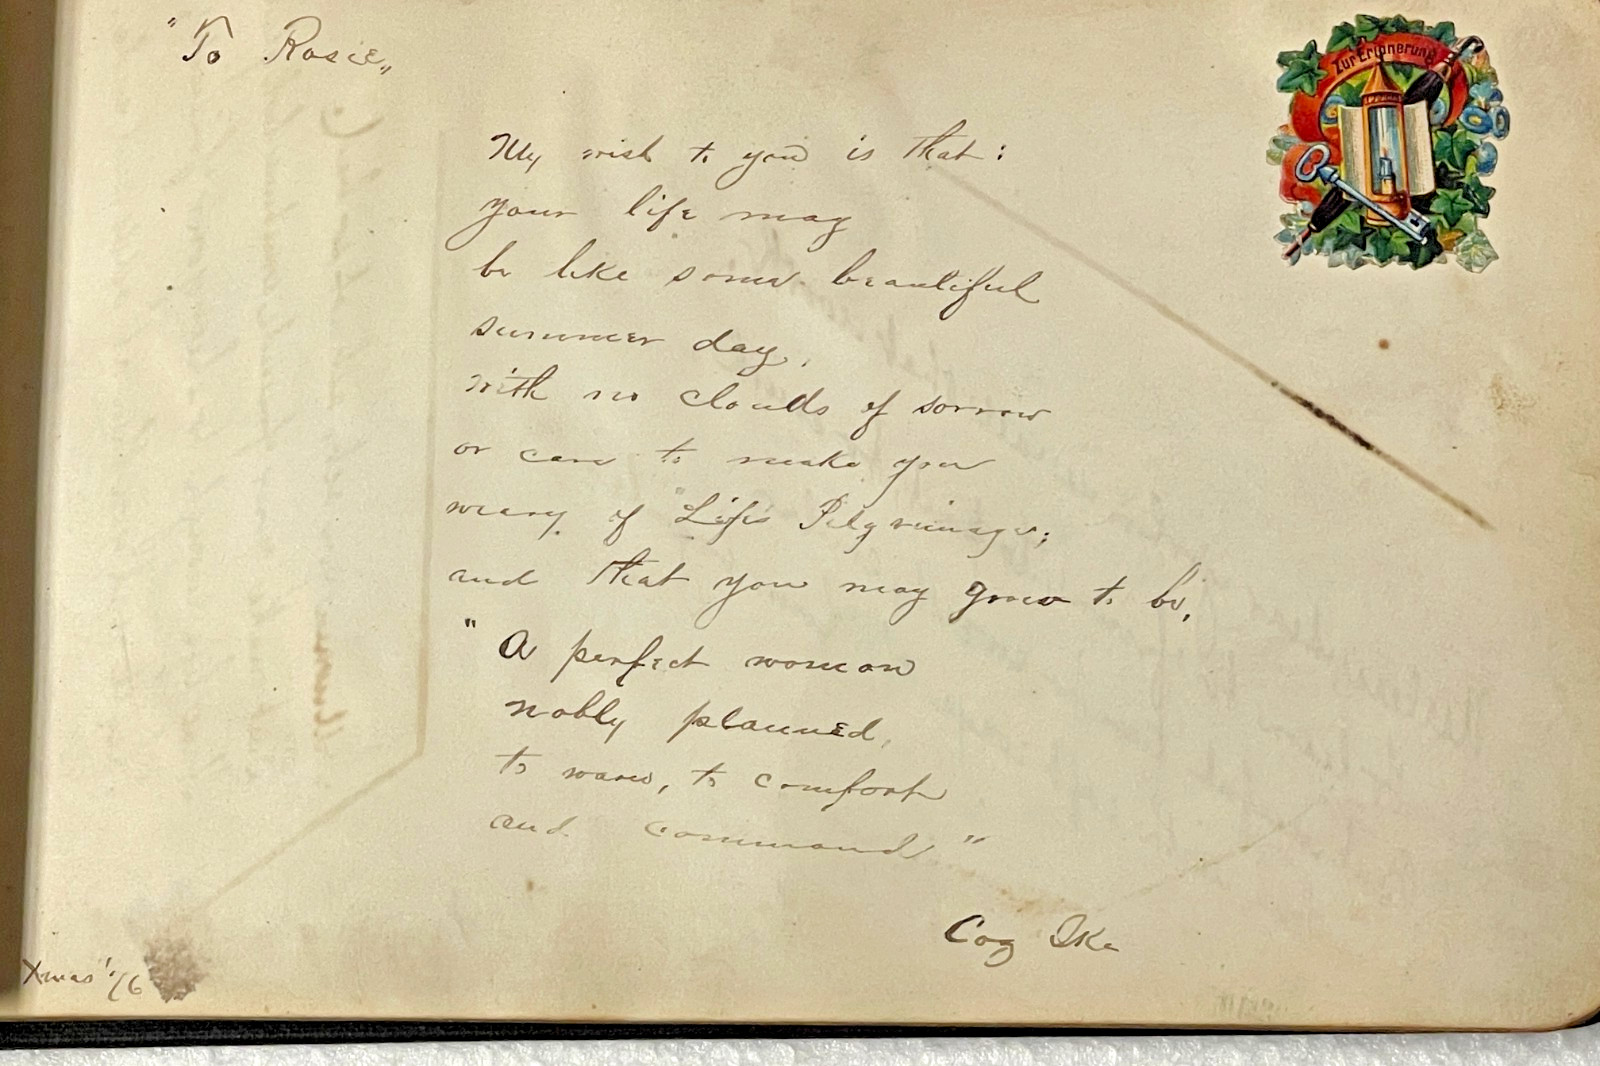 "To Rosie"
Zur Erinnerung
My wish to you is that:
your life may
be like some beautiful
summer day,
with no clouds of sorrow
or care to make you
weary of "Life's Pilgrimage;
and that you may grow to be,
"A perfect woman
nobly planned,
to warn, to comfort
and command"
Coz Ike
Xmas '16